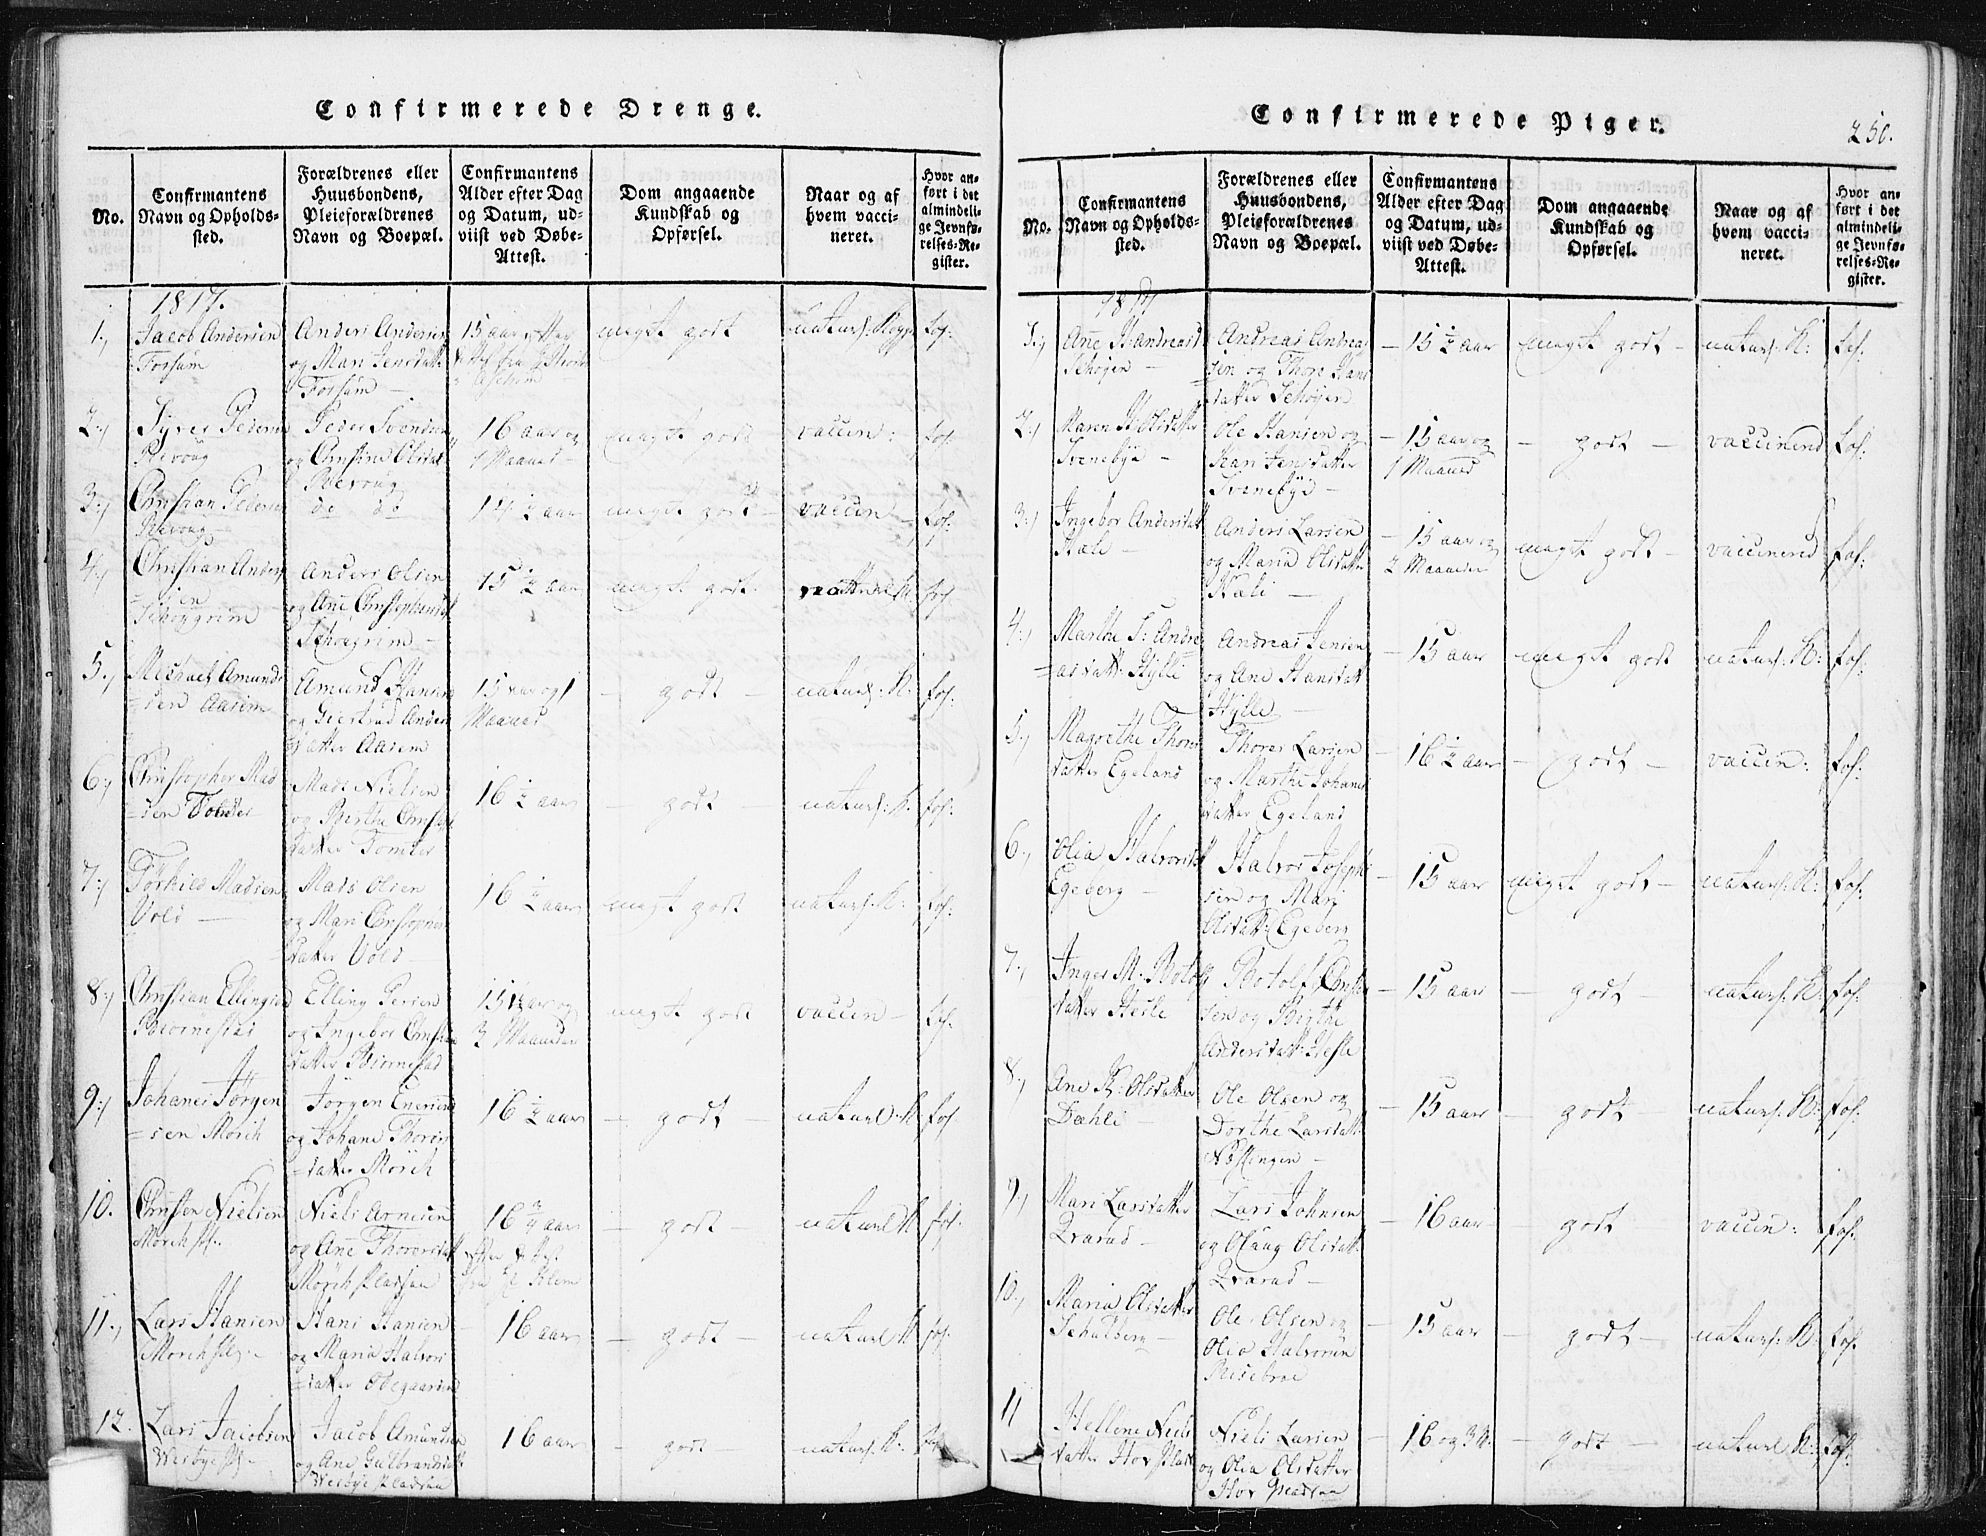 Confirmerede Drenge.
No.
Confirmantens
Navn og Opholds-
sted.
Forældrenes eller
Huusbondens,
Pleieforældrenes
Navn og Boepæl.
Confirmantens
Alder efter Dag
og Datum, ud-
viist ved Døbe-
Attest.
Dom angaaende
Kundskab og
Opførsel.
Naar og af
hvem vacci-
neret.
Hvor an-
ført i det
almindeli-
ge Jevnfø-
relses-Re-
gister.
1817.
1.,
Jacob Andersen
Forsum
Anders Andersen
og Mari Jensdatt
Forsum —
15 aar
meget godt
fos:
2.,
Syver Peders
Revoug
Peder Svends
og Christine Olsdat
Revoug
16 aar og
1 Maaned —
meget godt
vaccin:
fos.
3.,
Christian Peders
Revoug —
do do
14 ½ aar
meget godt —
vaccin —
fos:
4.,
Christian Anders
sen
Schougrim
Anders Olsen
og Ane Christophersd
Schougrim —
15 ½ aar
meget godt
fos
5.,
Michael Amund
=sen Aasem
Amund Hansen
og Giertrud Anders
datter Aasem
15 aar og 1
Maaned
— godt —
naturl: K:
fos.
6.,
Christopher Mad
=sen Tomter
Mads Nielsen
og Berthe Christoph
datter Tomter
16 ½ aar
— godt —
naturl: K.
fos.
7.,
Torkild Madsen
Vold —
Mads Olsen
og Mari Christopher
datter Vold —
16 ½ aar
meget godt
naturl: K:
fos.
8.,
Christian Ellingsen
Biørnestad
Elling Persen
og Ingebor Christian
datter Biørnestad
15 aar og
3 Maaneder
meget godt
vaccin —
fos.
9.,
Johanes Jörgen
=sen Mörch
Jörgen Enersen
og Johane Thores
=datter Mörch
16 ½ aar
— godt —
naturl K
fos.
10.
Christen Nielsen
Mörch pl.
Niels Arnesen
og Ane Thoresdatt
Mörch pladsen
16 ¾ aar
— godt
naturl K
fos.
11.,
Lars Hansen
Mörch pl. —
Hans Hansen
og Maria Halvors
=datter
16 aar
— godt —
naturl K
fos.
12.
Lars Jacobsen
Wesbye pl. —
Jacob Amundsen
og Ane Gulbrandsdatt
Wesbye pladsen
16 aar
— godt
naturl: K:
fos
Confirmerede Piger.
250.
No.
Confirmantens
Navn og Opholds-
sted.
Forældrenes eller
Huusbondens,
Pleieforældrenes
Navn og Boepæl.
Confirmantens
Alder efter Dag
og Datum, ud-
viist ved Døbe-
Attest.
Dom angaaende
Kundskab og
Opførsel.
Naar og af
hvem vacci-
neret.
Hvor an-
ført i det
almindeli-
ge Jevnfø-
relses-Re-
gister.
1817
1.,
Ane H Andreasd
Schøyen —
Andreas Andrea
sen og Thore Hans
datter Schøyen
— 15 ½ aar
meget godt —
naturl: K:
fos.
2.,
Maren H Olsdatter
Svenebye —
Ole Hansen og
Kari Jensdatter
Svenebye —
— 15 aar og
1 Maaned
— godt —
vaccinered
fos.
3.,
Ingebor Andersdatt
Hæli —
Anders Larsen
og Maria Olsdatter
Hæli —
— 15 aar og
2 Maaneder
meget godt —
vaccinered
fos:
4.,
Marthe S: Andre
=asdatt: Hylli
Andreas Jensen
og Ane Hansdatt
Hylle —
— 15 aar
meget godt
naturl: K:
fos.
5.,
Magrethe Thors
datter Egeland
Thores Larsen
og Marthe Johanes
datter Egeland
— 16 ½ aar
— godt —
vaccin:
fos.
6.,
Olia Halvorsdatt
Egeberg —
Halvor Joseph
sen og Mari
Olsdatt: Egeberg
— 15 aar
meget godt —
naturl: K:
fos.
7.,
Inger M: Botolfs
datter Hesle
Botolf Christen
sen og Birthe
Andersdatt: Hesle
— 15 aar
— godt —
naturl: K:
fos.
8.,
Ane K: Olsdatter
Dæhli —
Ole Olsen og
Dorthe Larsdatt:
Næslingen —
— 15 aar
— godt —
naturl: K:
fos.
9.,
Mari Larsdatter
Qvarud —
Lars Johnsen
og Olaug Olsdatt:
Qvarud —
— 16 aar
— godt
vaccin:
fos.
10.,
Maria Olsdatter
Schulberg —
Ole Olsen og
Olia Halvorsen
Risebroe
— 15 aar
— godt —
naturl: K:
fos.
11
Hellene Niels
datter Hov plads
Niels Larsen
og Olia Olsdatter
Hov pladsen
— 16 og 3 M.
— godt —
naturl K:
fos.